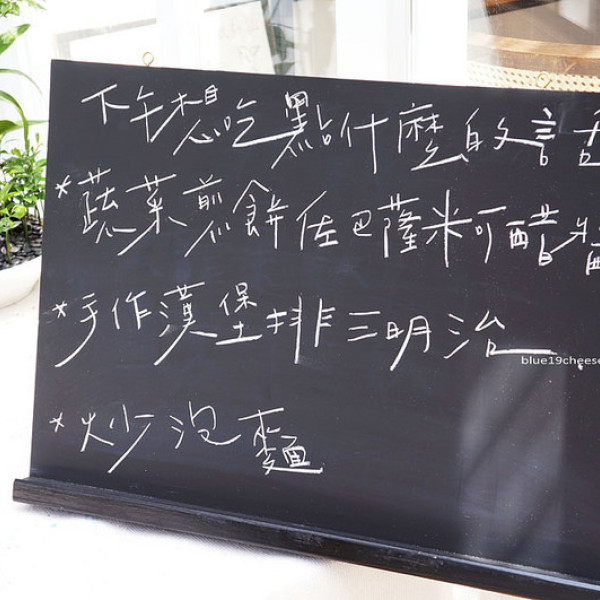 下午想吃點什麼的話
*蔬菜煎餅佐巴薩米可醋醬
*手作漢堡排三明治
blue19cheese
*炒泡麵